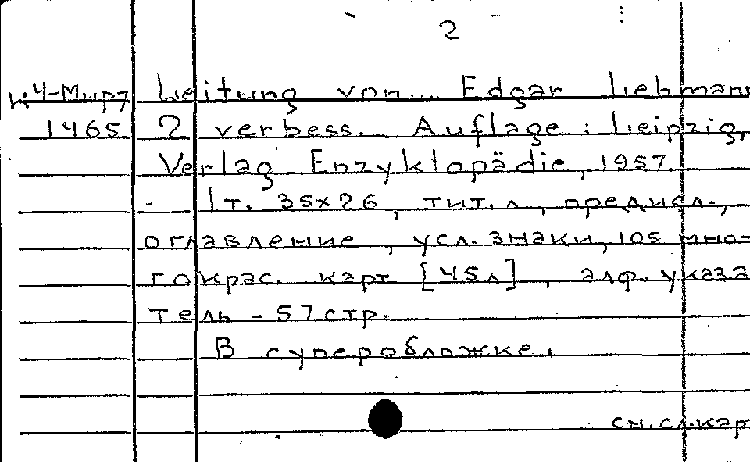 2
к4-Мирт Leitung von Edgar Lehmann
1465 2 verbess. Auflage: Leipzig,
Verlag Enzyklopädie, 1957.
- 1т. 35×26, тит. л, предисл.,
оглавление, усл. знаки, 105 мно-
гокрас. карт [45л], алф. указа
тель - 57 стр.
В суперобложке.
см.сл.кар